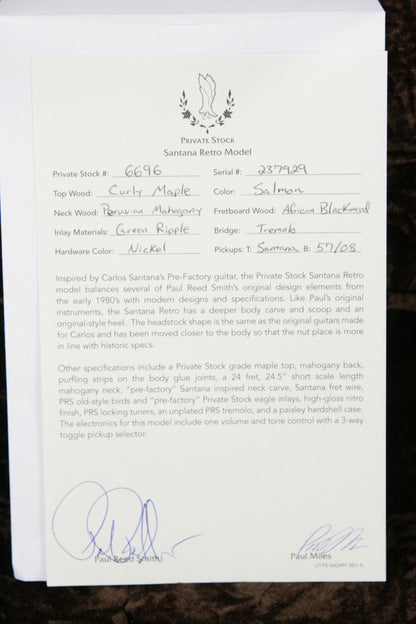 Private Stock
Santana Retro Model
Private Stock #: 6696 Serial #: 237929
Top Wood: Curly Maple Color: Salmon
Neck Wood: Peruvian Mahogany Fretboard Wood: African Blackwood
Inlay Materials: Green Ripple Bridge: Tremolo
Hardware Color: Nickel Pickups: T: Santana B: 57/08
Inspired by Carlos Santana's Pre-Factory guitar, the Private Stock Santana Retro
model balances several of Paul Reed Smith's original design elements from
the early 1980's with modern designs and specifications. Like Paul's original
instruments, the Santana Retro has a deeper body carve and scoop and an
original-style heel. The headstock shape is the same as the original guitars made
for Carlos and has been moved closer to the body so that the nut place is more
in line with historic specs.
Other specifications include a Private Stock grade maple top, mahogany back,
purfling strips on the body glue joints, a 24 fret, 24.5" short scale length
mahogany neck, "pre-factory" Santana inspired neck carve, Santana fret wire,
PRS old-style birds and "pre-factory" Private Stock eagle inlays, high-gloss nitro
finish, PRS locking tuners, an unplated PRS tremolo, and a paisley hardshell case.
The electronics for this model include one volume and tone control with a 3-way
toggle pickup selector.
Paul Reed Smith Paul Miles